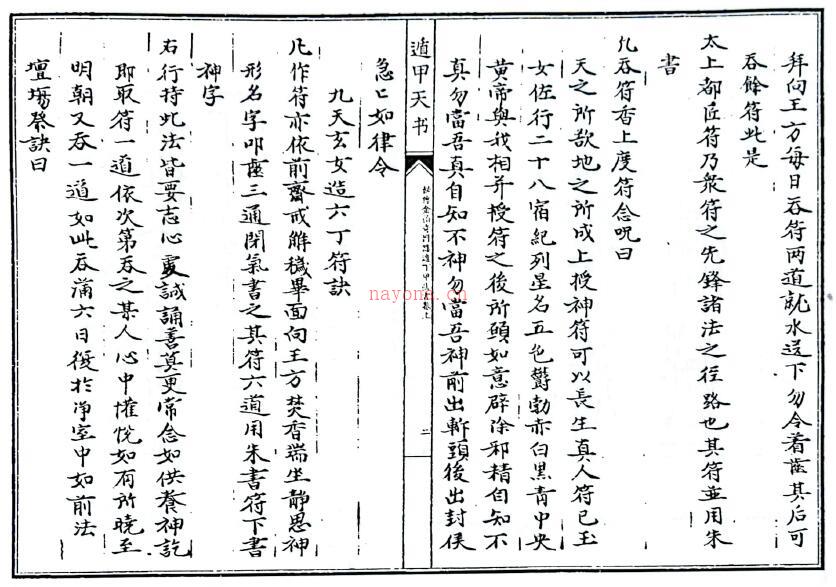 拜向王方每日吞符两道就水送下勿令着齒其后可
吞餘符此是
太上都匠符乃衆符之先鋒諸法之徑路也其符並用朱
書
凢吞符香上度符念呪曰
天之所敬地之所成上授神符可以長生真人符已玉
女佐行二十八宿紀列星名五色欝勃赤白黑青中央
黄帝與我相并授符之後所願如意辟除邪精自知不
真勿當吾真自知不神勿當吾神前出斬頭後出封侯
遁甲天书
二
急〻如律令
九天玄女造六丁符訣
凢作符亦依前齋戒解穢畢面向王方焚香端坐静思神
形名字叩齒三通閉氣書之其符六道用朱書符下書
神字
右行持此法皆要志心䖍誠誦善真更常念如供養神訖
即取符一道依次第吞之某人心中懽悦如有所曉至
明朝又吞一道如此吞滿六日復於净室中如前法
壇場祭訣曰
nayona.cn